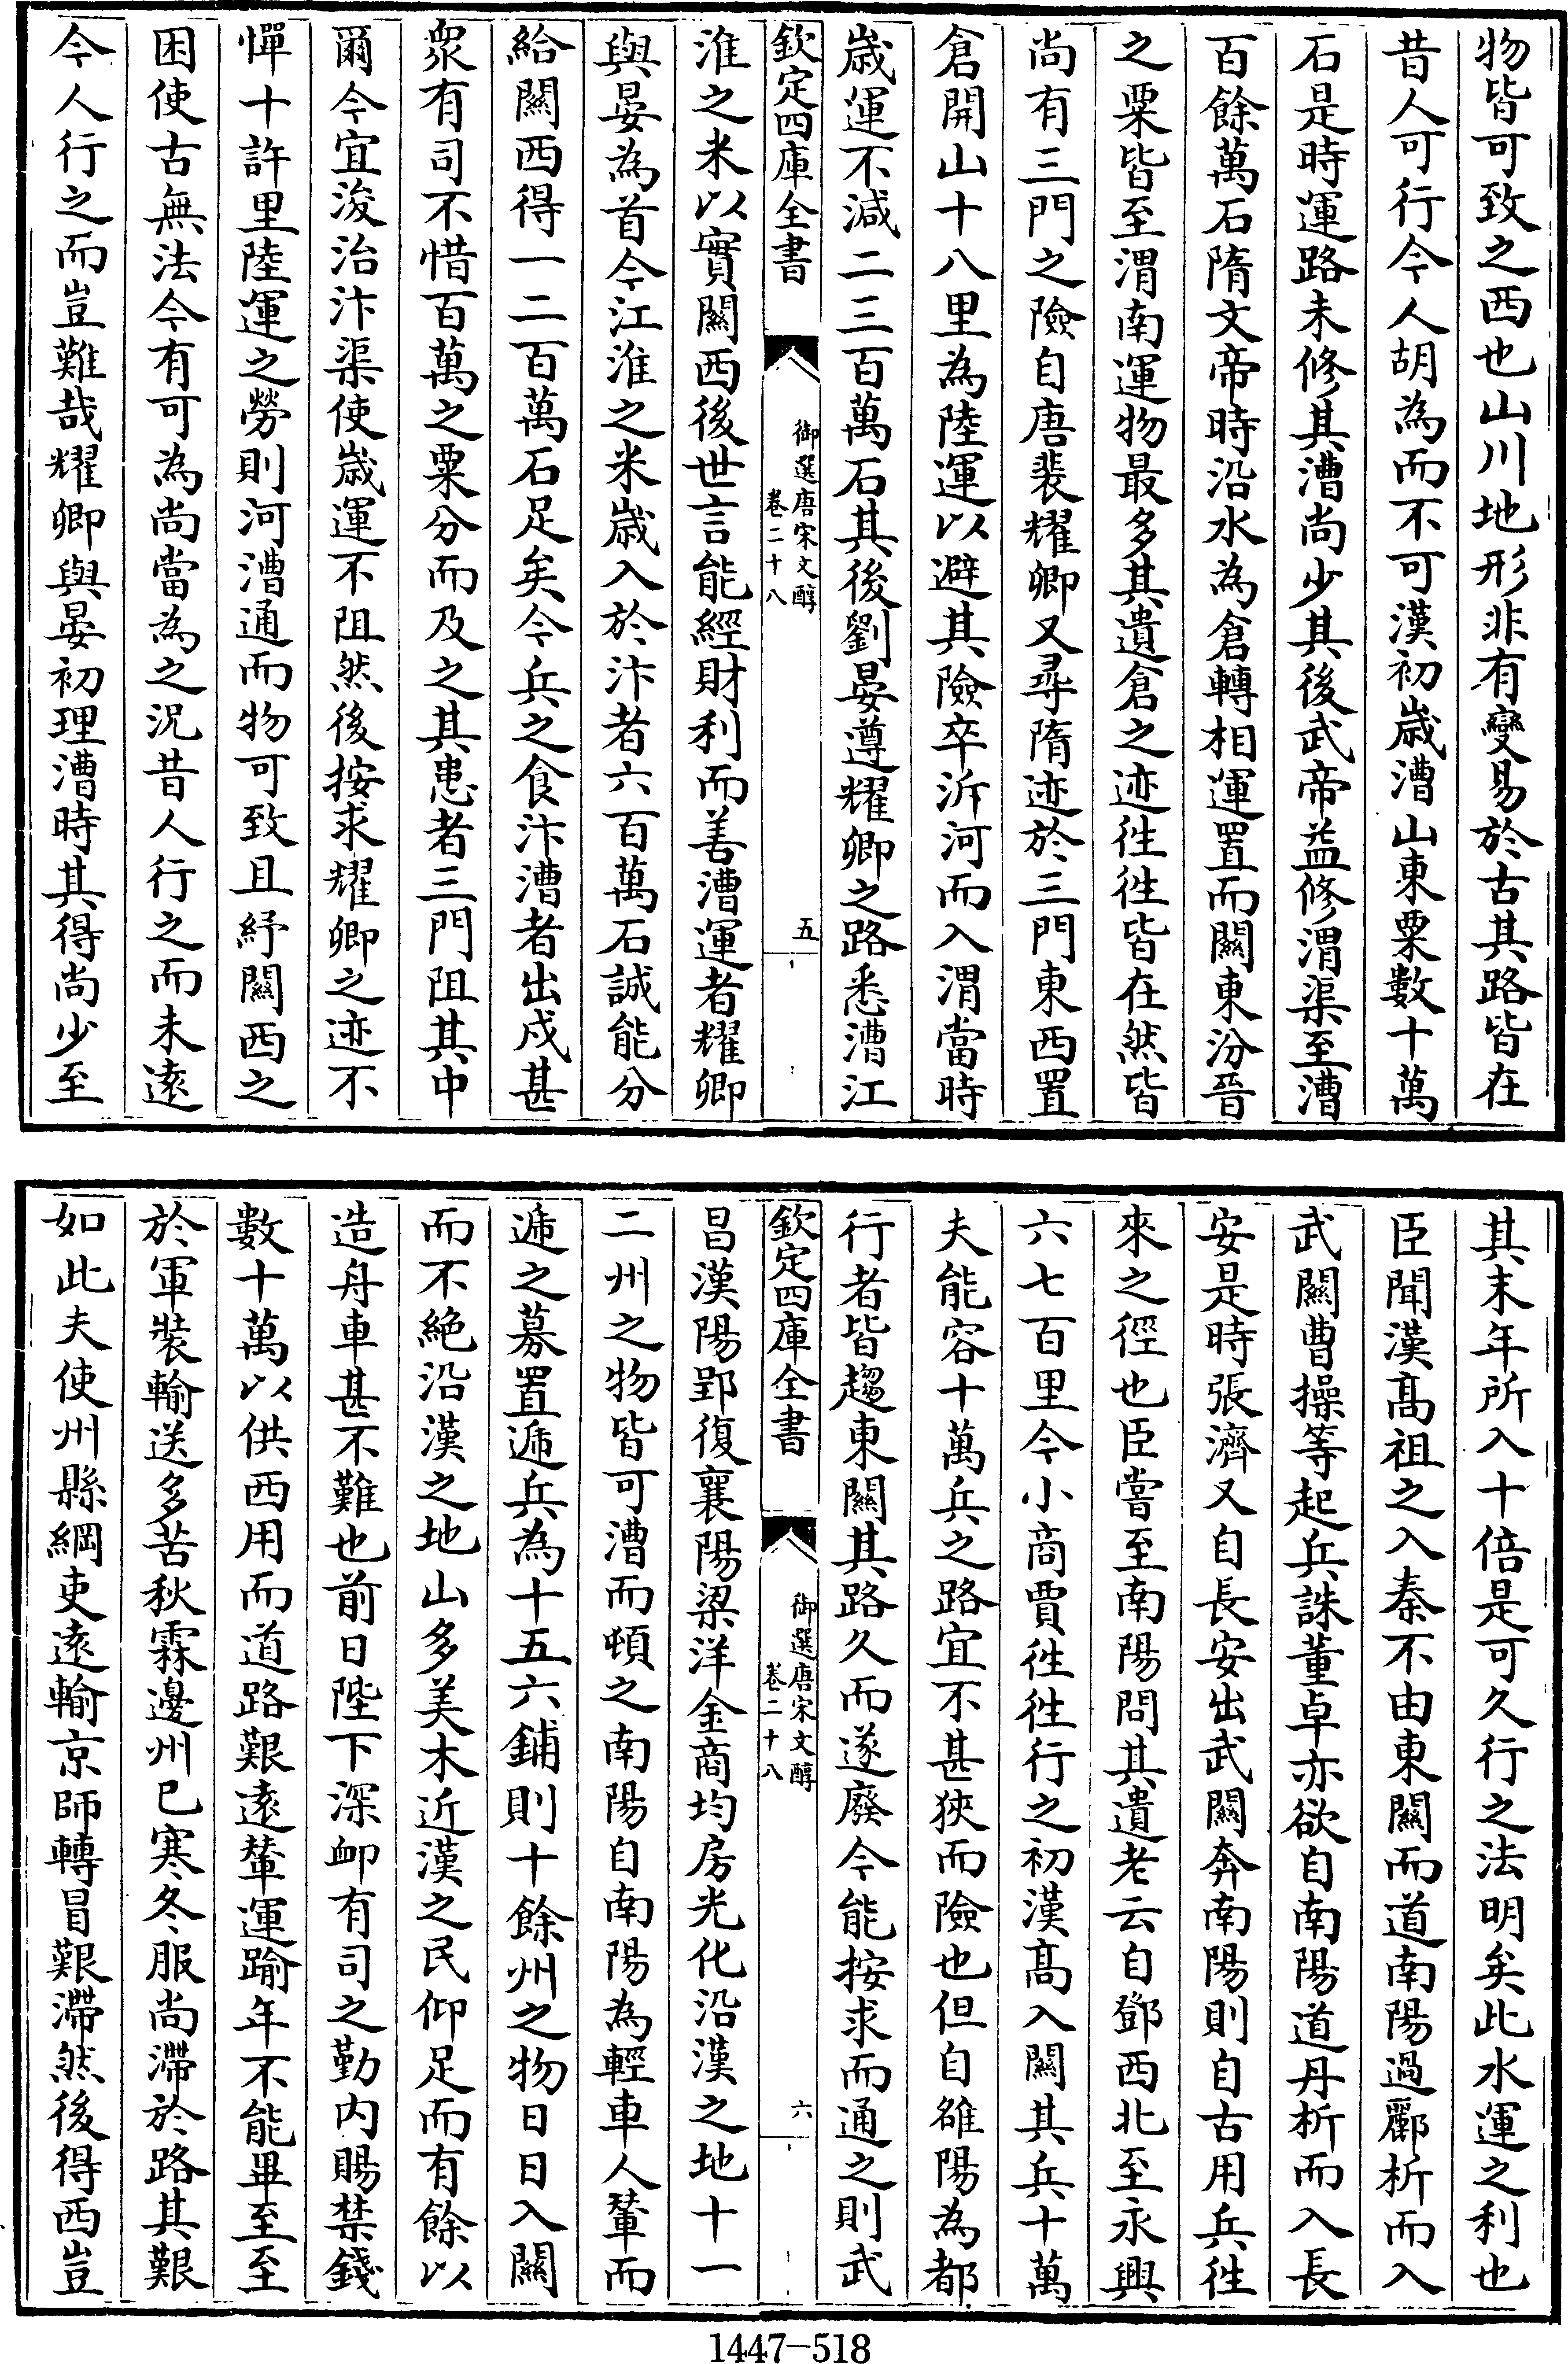 物皆可致之西也山川地形非有變易於古其路皆在
昔人可行今人胡為而不可漢初歲漕山東粟數十萬
石是時運路未修其漕尚少其後武帝益修渭渠至漕
百餘萬石隋文帝時沿水為倉轉相運置而關東汾晉
之粟皆至渭南運物最多其遺倉之迹徃徃皆在然皆
尚有三門之險自唐裴耀卿又尋隋迹於三門東西置
倉開山十八里為陸運以避其險卒泝河而入渭當時
歲運不減二三百萬石其後劉晏遵耀卿之路悉漕江
欽定四庫全書
御選唐宋文醇
卷二十八
五
淮之米以實關西後世言能經財利而善漕運者耀卿
與晏為首今江淮之米歲入於汴者六百萬石誠能分
給關西得一二百萬石足矣今兵之食汴漕者出戍甚
眾有司不惜百萬之粟分而及之其患者三門阻其中
爾今宜浚治汴渠使歲運不阻然後按求耀卿之迹不
憚十許里陸運之勞則河漕通而物可致且紓關西之
困使古無法今有可為尚當為之況昔人行之而未遠
今人行之而豈難哉耀卿與晏初理漕時其得尚少至
其末年所入十倍是可久行之法明矣此水運之利也
臣聞漢髙祖之入秦不由東關而道南陽過酈析而入
武關曹操等起兵誅董卓亦欲自南陽道丹析而入長
安是時張濟又自長安出武關奔南陽則自古用兵徃
來之徑也臣嘗至南陽問其遺老云自鄧西北至永興
六七百里今小商賈徃徃行之初漢髙入關其兵十萬
夫能容十萬兵之路宜不甚狹而險也但自雒陽為都
行者皆趨東關其路久而遂廢今能按求而通之則武
欽定四庫全書
御選唐宋文醇
卷二十八
六
昌漢陽郢復襄陽梁洋金商均房光化沿漢之地十一
二州之物皆可漕而頓之南陽自南陽為輕車人輦而
遞之募置遞兵為十五六鋪則十餘州之物日日入關
而不絶沿漢之地山多美木近漢之民仰足而有餘以
造舟車甚不難也前日陛下深卹有司之勤内賜禁錢
數十萬以供西用而道路艱遠輦運踰年不能畢至至
於軍裝輸送多苦秋霖邊州已寒冬服尚滯於路其艱
如此夫使州縣綱吏遠輸京師轉冒艱滯然後得西豈
1447-518